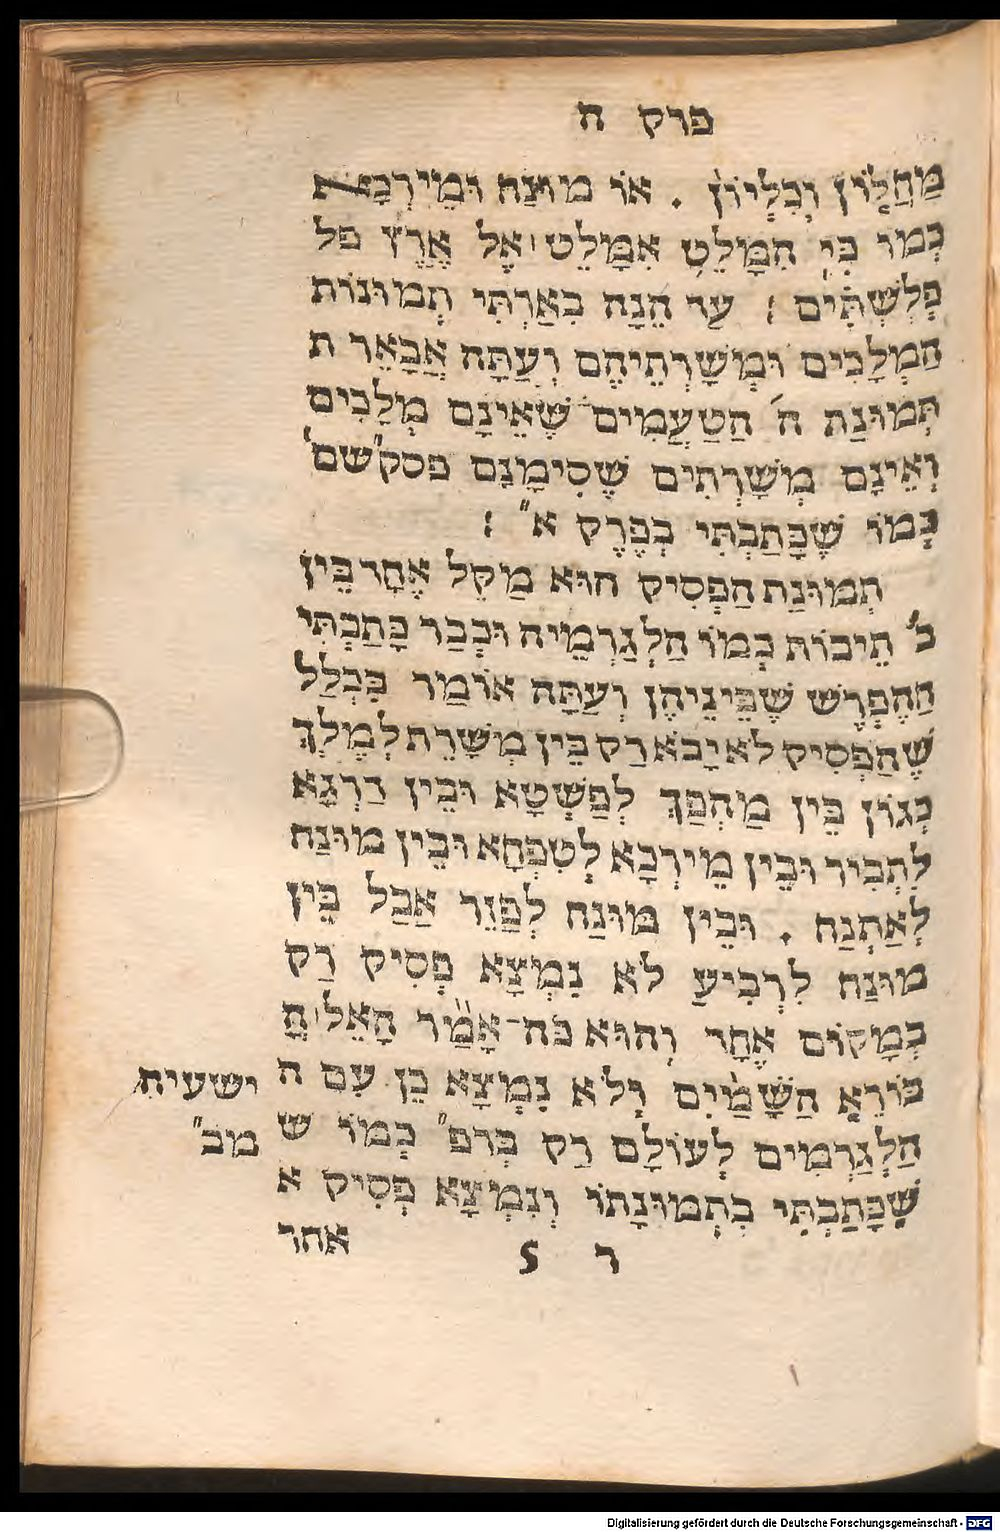 פרק ח
מַחֲלוֹן וְכִלְיוֹן . אוֹ מוּנַח וּמֵירְכָא
כְּמוֹ כִּי הִמָּלֵט אִמָּלֵט׀ אֶל אֶרֶץ פל
פְּלִשְׁתִּים : עַד הֵנָּה בֵּאַרְתִּי תְמוּנוֹת
הַמְלָכִים וּמְשָׁרְתֵיהֶם וְעַתָּה אֲבָאֵר ת
תְּמוּנַת ה' הַטַּעֲמִים שֶׁאֵינָם מְלָכִים
וְאֵינָם מְשָׁרְתִים שֶׁסִּימָנָם פסק"שם'
כְּמוֹ שֶׁכָּתַבְתִּי בְּפֶרֶק א" :
תְמוּנַת הַפְּסִיק הוּא מַקֵּל אֶחָד בֵּין
ב' תֵיבוֹת כְּמוֹ הַלְגַרְמֵיהּ וּכְבָר כָּתַבְתִּי
הַהֶפְרֵשׁ שֶׁבֵּינֵיהֶן וְעַתָּה אוֹמַר בִּכְלָל
שֶׁהַפְּסִיק לֹא יָבֹא רַק בֵּין מְשָׁרֵת לְמֶלֶךְ
כְּגוֹן בֵּין מַהְפַּךְ לְפַשְׁטָא וּבֵין דַרְגָּא
לִתְבִיר וּבֵין מֵירְכָא לְטִפְחָא וּבֵין מוּנַח
לְאַתְנַח . וּבֵין מוּנַח לְפָזֵר אֲבָל בֵּין
מוּנַח לִרְבִיעַ לֹא נִמְצָא פְּסִיק רַק
בְּמָקוֹם אֶחָד וְהוּא כֹּה־אָמַר הָאֵל׀ הַ
בּוֹרֵא הַשָּׁמַיִם וְלֹא נִמְצָא כֵן עִם ה
ישעיה
הַלְגַרְמִים לְעוֹלָם רַק בְּרפ" כְּמוֹ ש
מב"
שֶׁכָּתַבְתִּי בִתְמוּנָתוֹ וְנִמְצָא פְּסִיק א
ר S אחר
Digitalisierung gefördert durch die Deutsche Forschungsgemeinschaft - DFG